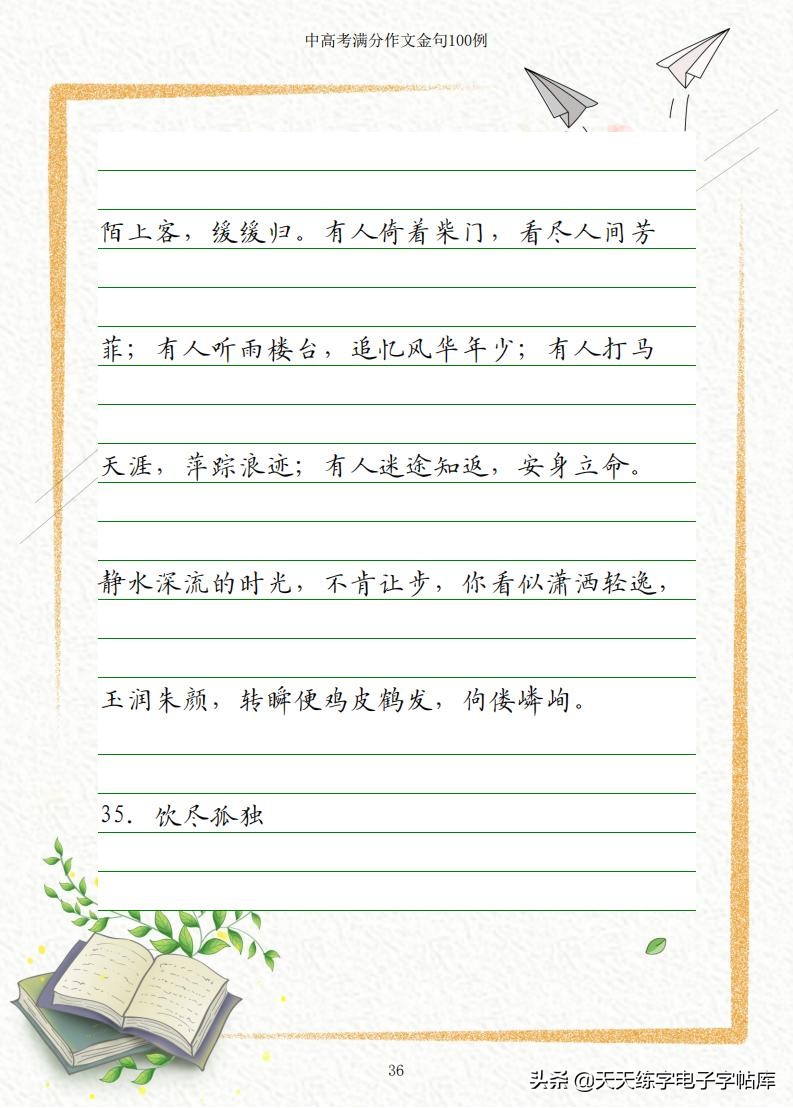 中高考满分作文金句100例
陌上客，缓缓归。有人倚着柴门，看尽人间芳
菲；有人听雨楼台，追忆风华年少；有人打马
天涯，萍踪浪迹；有人迷途知返，安身立命。
静水深流的时光，不肯让步，你看似潇洒轻逸，
玉润朱颜，转瞬便鸡皮鹤发，佝偻嶙峋。
35. 饮尽孤独
36
头条 @天天练字电子字帖库